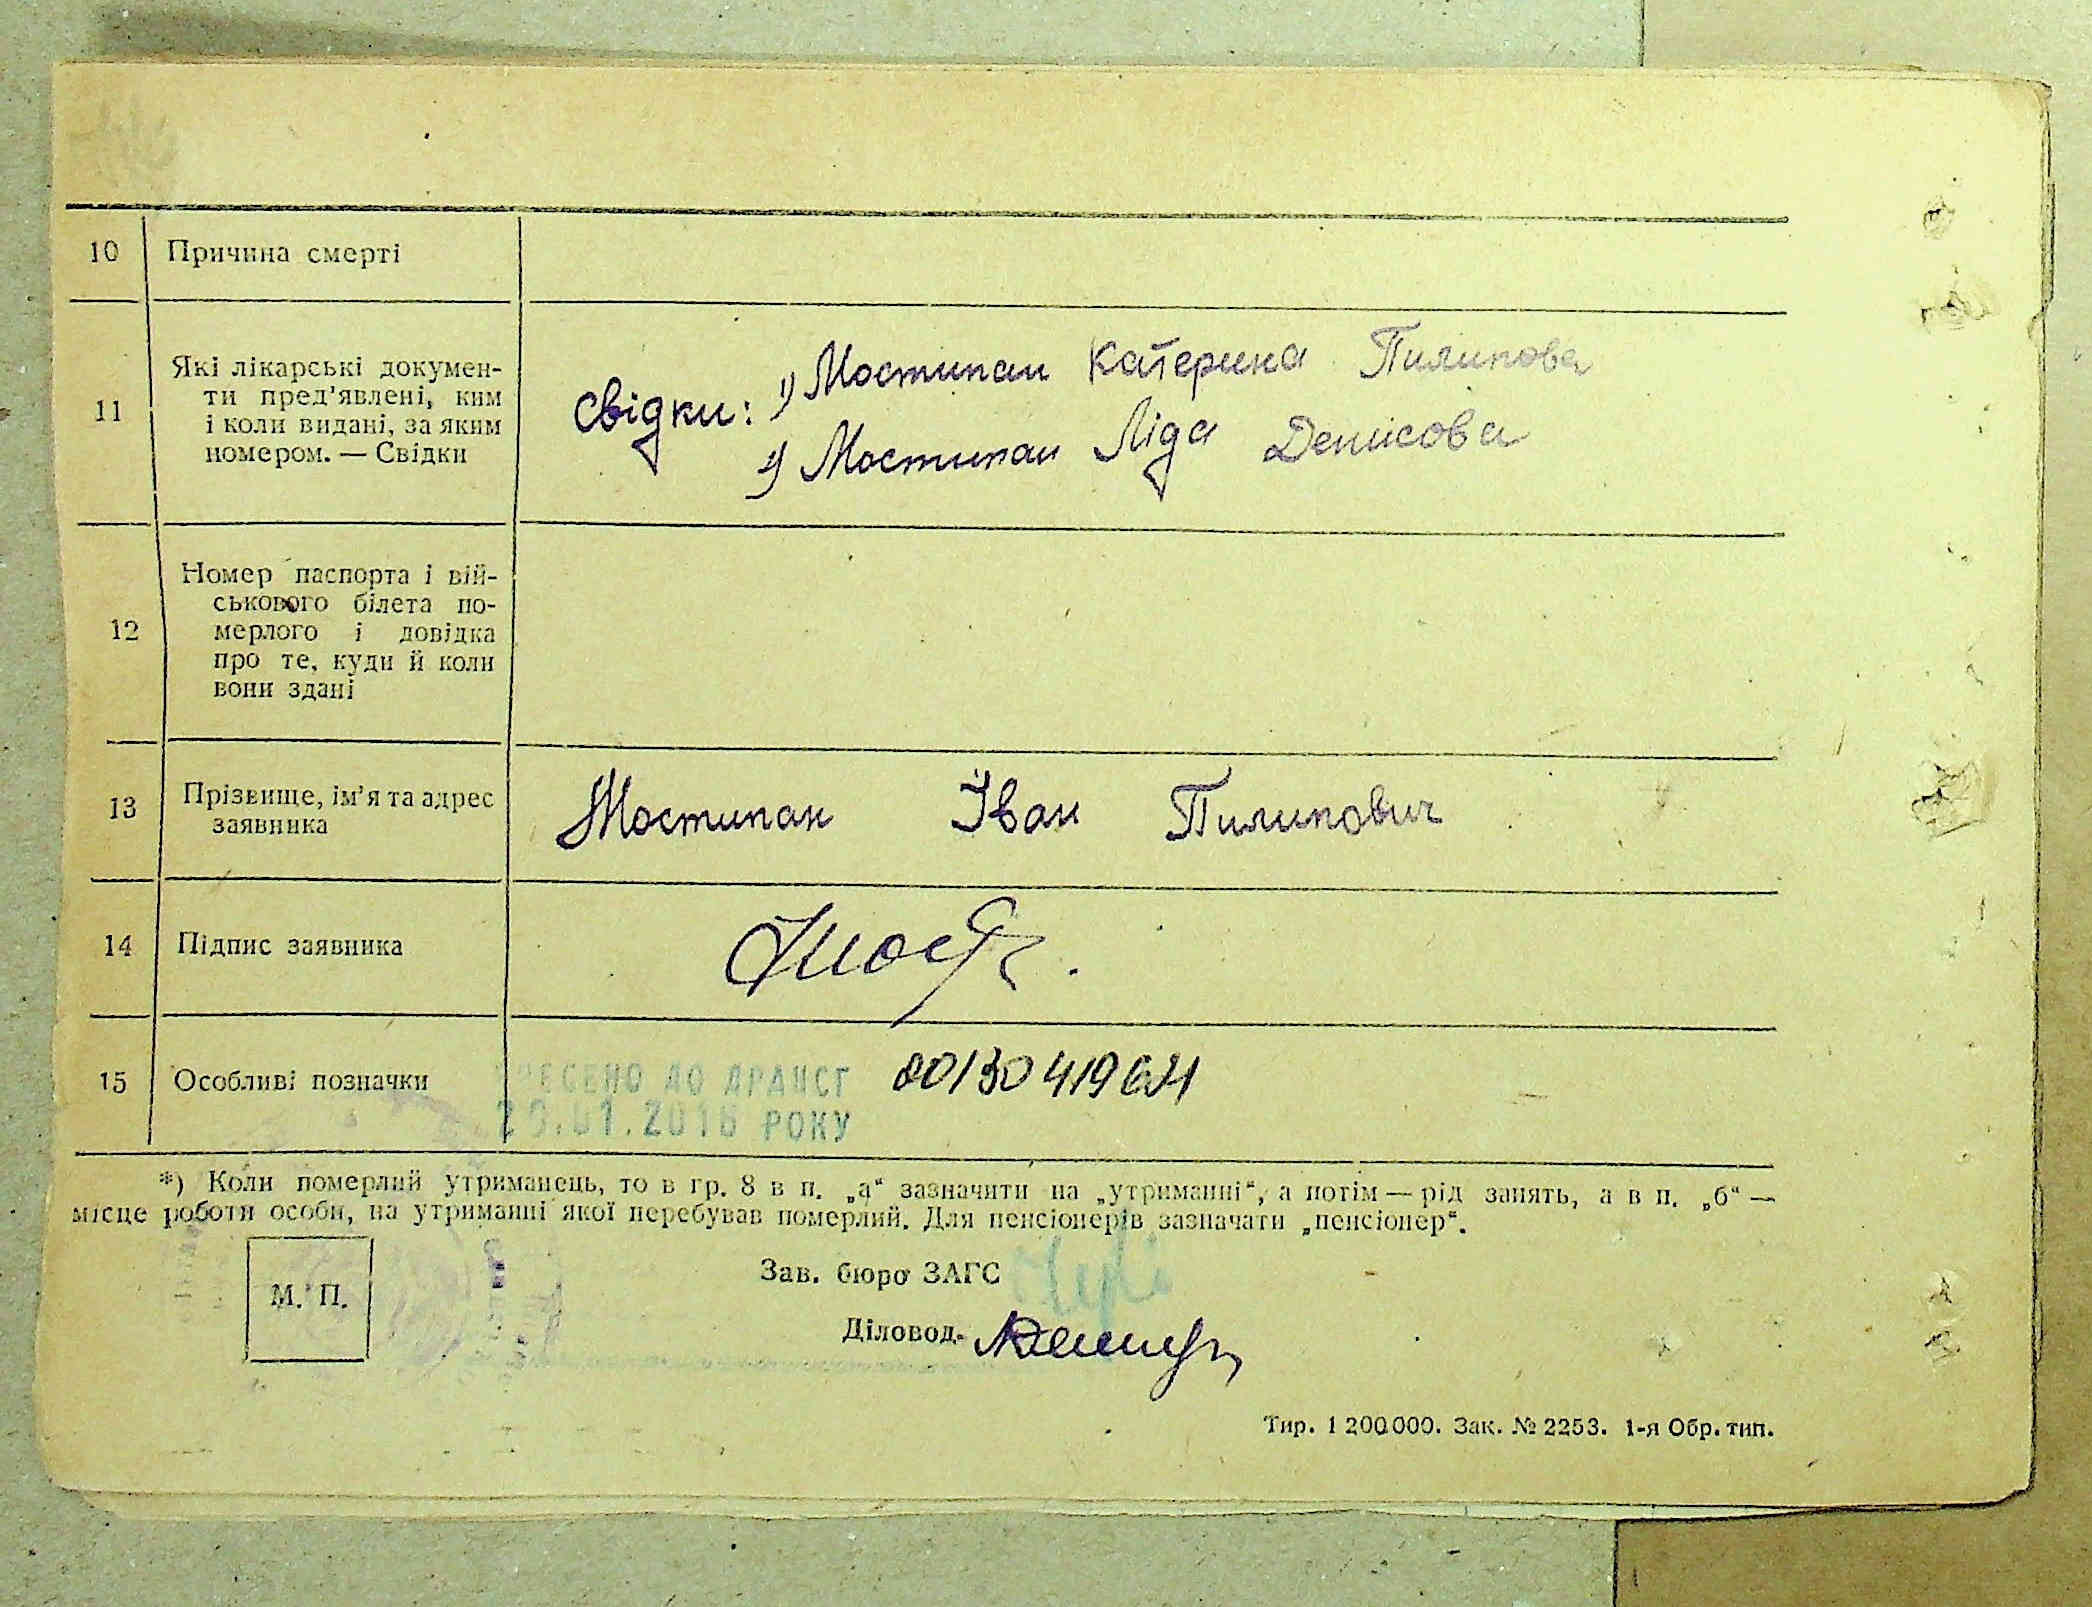 10 Причина смерті
11 Які лікарські докумен-
ти пред'явлені, ким
і коли видані, за яким
номером. — Свідки
Свідки: 1) Мостипан Катерина Пилипова
2) Мостипан Ліда Денисова
12 Номер паспорта і вій-
ськового білета по-
мерлого і довідка
про те, куди й коли
вони здані
13 Прізвище, ім'я та адрес
заявника
Мостипан Іван Пилипович
14 Підпис заявника
15 Особливі позначки
ВНЕСЕНО ДО ДРАЦСГ 00130419621
РОКУ
*) Коли померлий утриманець, то в гр. 8 в п. „а“ зазначити на „утриманні“, а потім — рід занять, а в п. „б“ —
місце роботи особи, на утриманні якої перебував померлий. Для пенсіонерів зазначати „пенсіонер“.
М. П.
Зав. бюро ЗАГС
Діловод
Тир. 1 200 000. Зак. № 2253. 1-я Обр. тип.